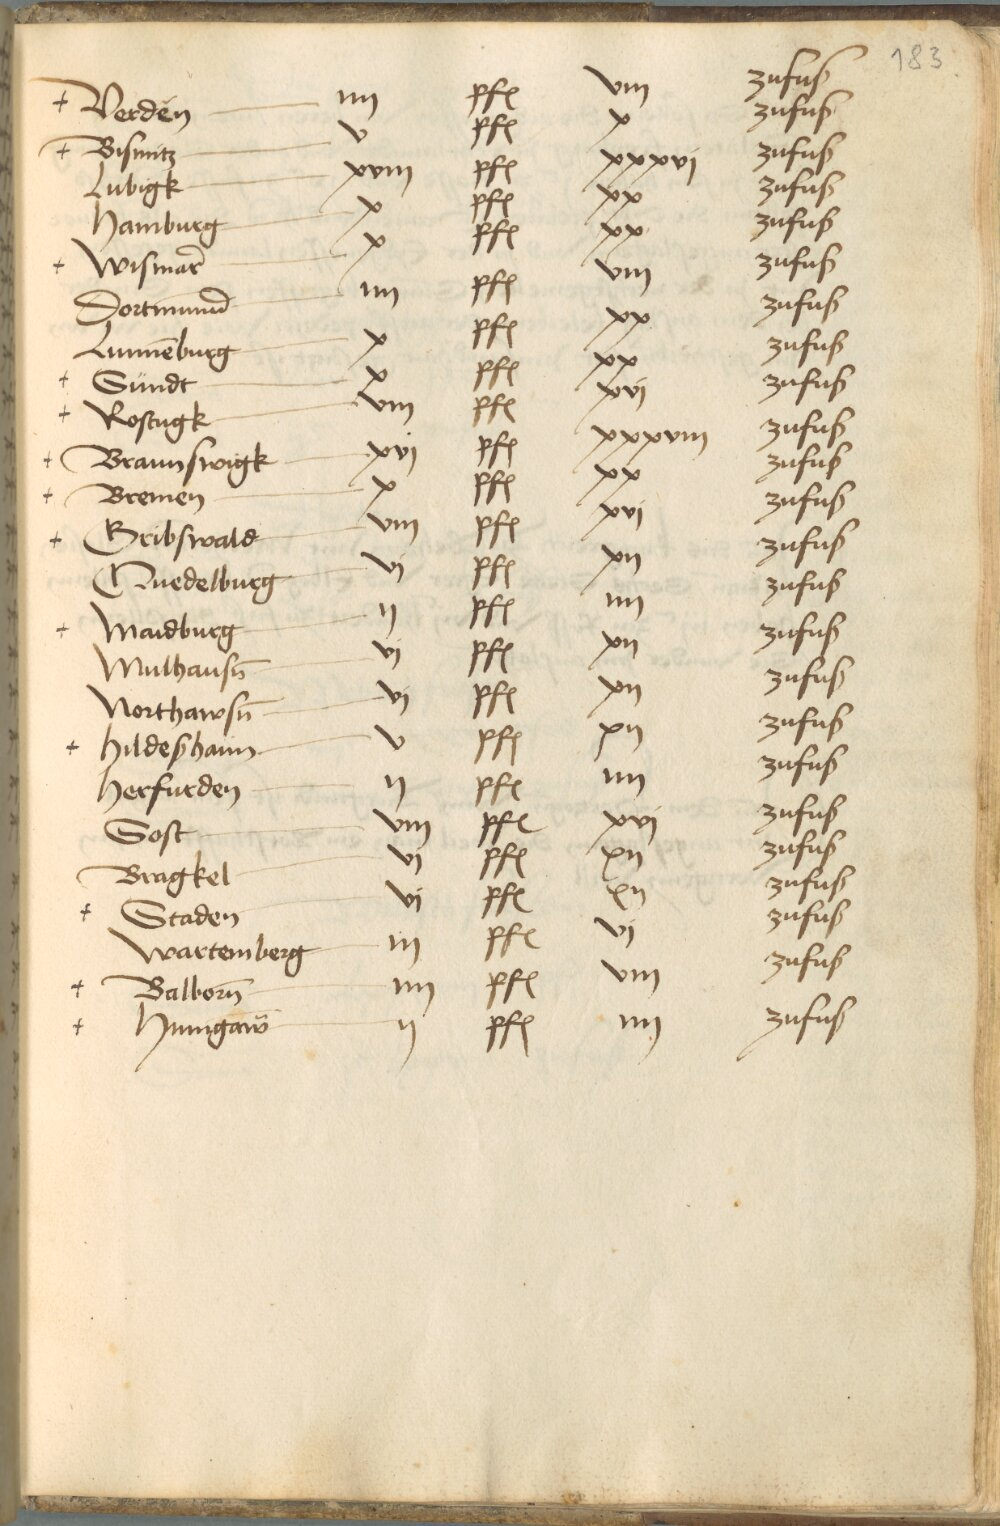 183
+ Verden iiii pfe viii zufuß
+ Bismitz v pfe x zufuß
Lubigk xviii pfe xxxvi zufuß
Hamburg x pfe xx zufuß
+ Wismar x pfe xx zufuß
Dortmund iiii pfe viii zufuß
Lunneburg x pfe xx zufuß
+ Sundt x pfe xx zufuß
+ Rostugk viii pfe xvi zufuß
+ Braunswigk xvi pfe xxxviii zufuß
+ Bremen x pfe xx zufuß
+ Gribswald viii pfe xvi zufuß
Quedelburg vi pfe xii zufuß
+ Maidburg ii pfe iiii zufuß
Mulhausn̄ vi pfe xii zufuß
Northawsn̄ vi pfe xii zufuß
+ Hildeßhaim v pfe xii zufuß
Herfurden ii pfe iiii zufuß
Sost viii pfe xvi zufuß
Bragkel vi pfe xii zufuß
+ Staden vi pfe xii zufuß
Wartemberg iii pfe vi zufuß
+ Balborn̄ iiii pfe viii zufuß
+ Hmngaw ii pfe iiii zufuß